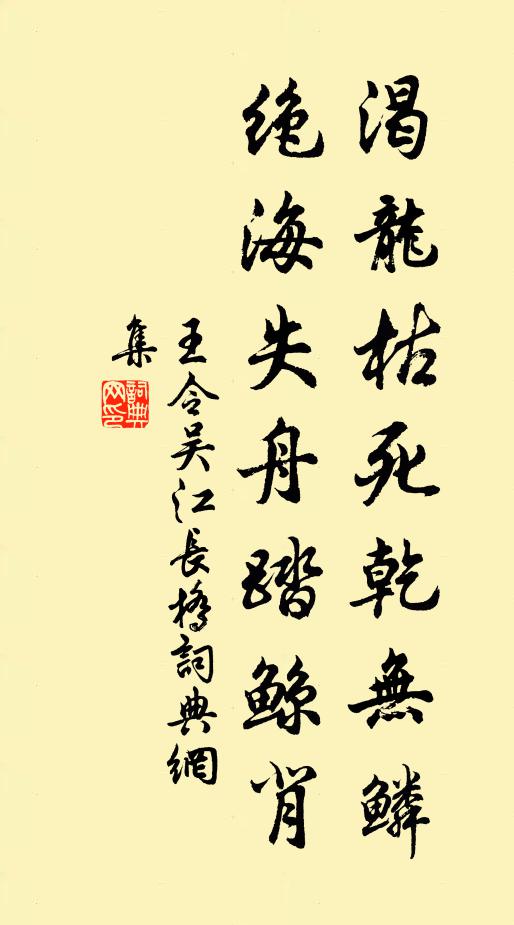 渴龍枯死乾無鱗
絶海失舟踏鲸背
王令吴江長橋詞典網
集
詞典
网印